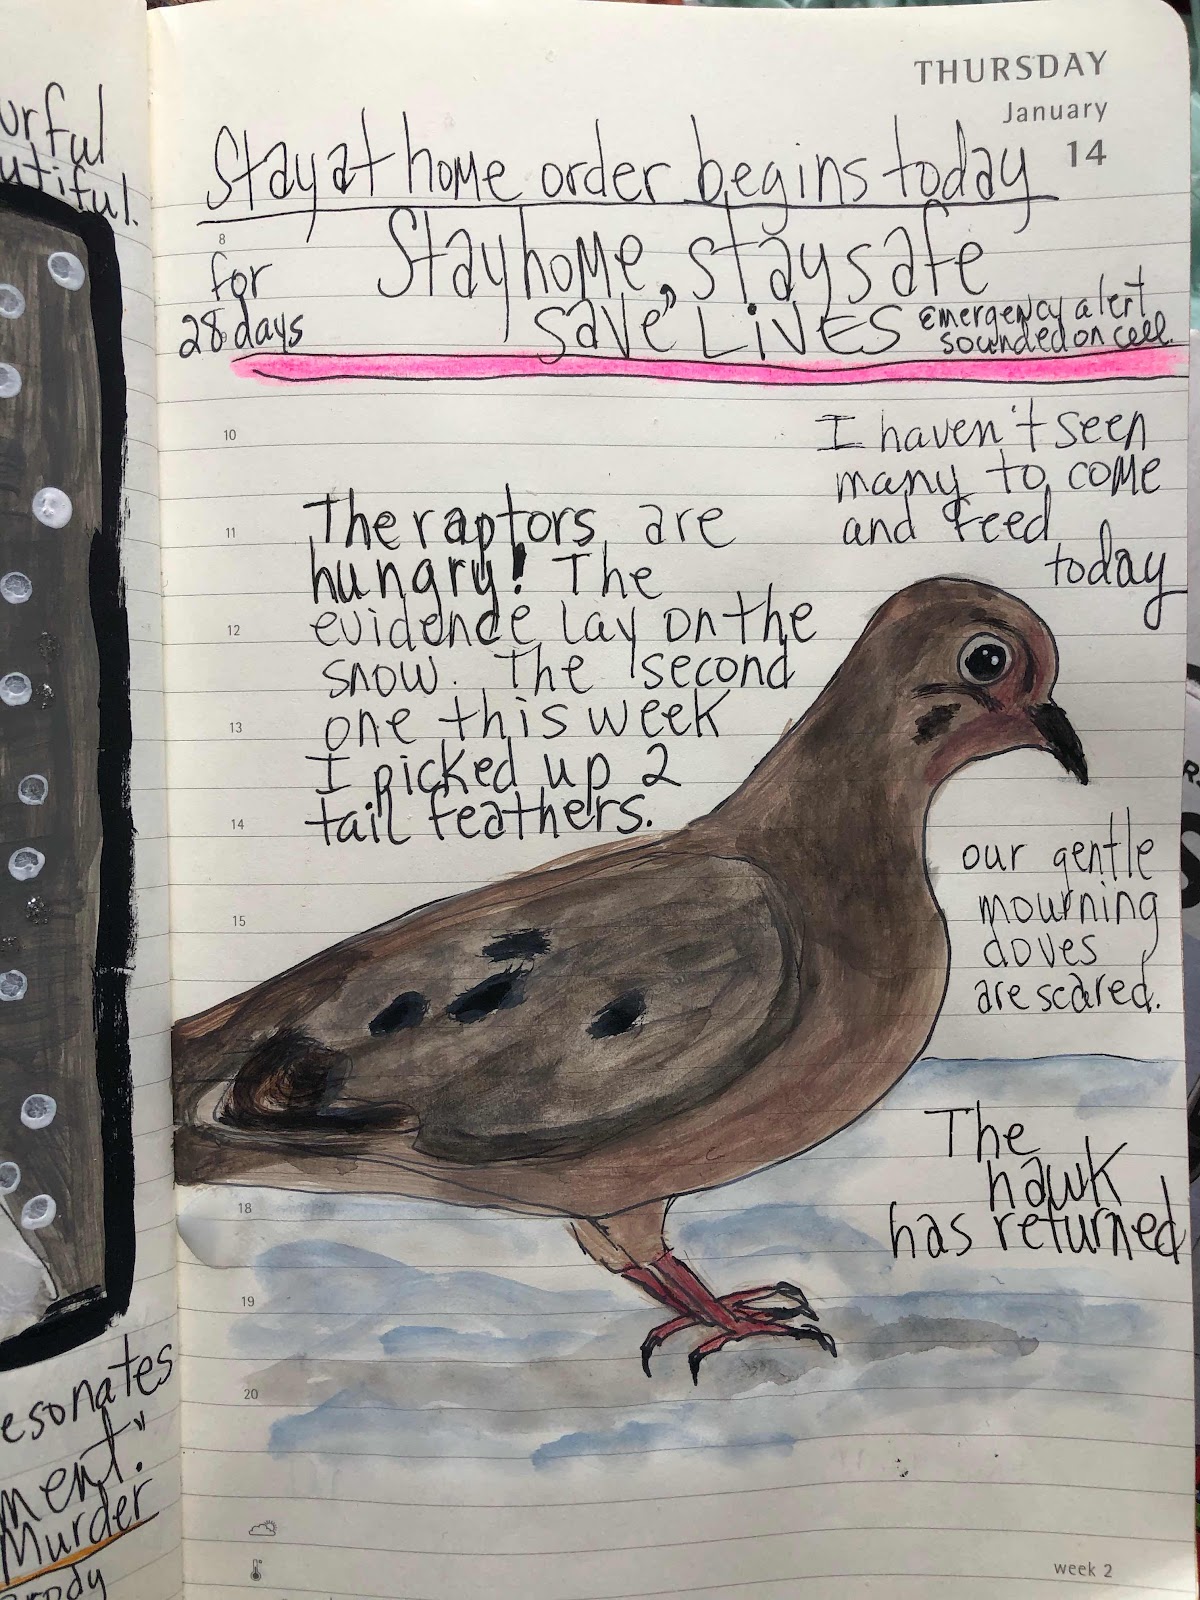 THURSDAY
January
14
Stay at home order begins today
8
for
28 days
Stay home, stay safe
save LiVES
emergency alert
sounded on cell.
10
I haven't seen
many to come
and feed
today
11
12
13
14
15
The raptors are
hungry! The
evidence lay on the
snow. The second
one this week
I picked up 2
tail feathers.
our gentle
mourning
doves
are scared.
The
hawk
has returned
18
19
20
week 2
urful
utiful.
esonates
ment."
Murder